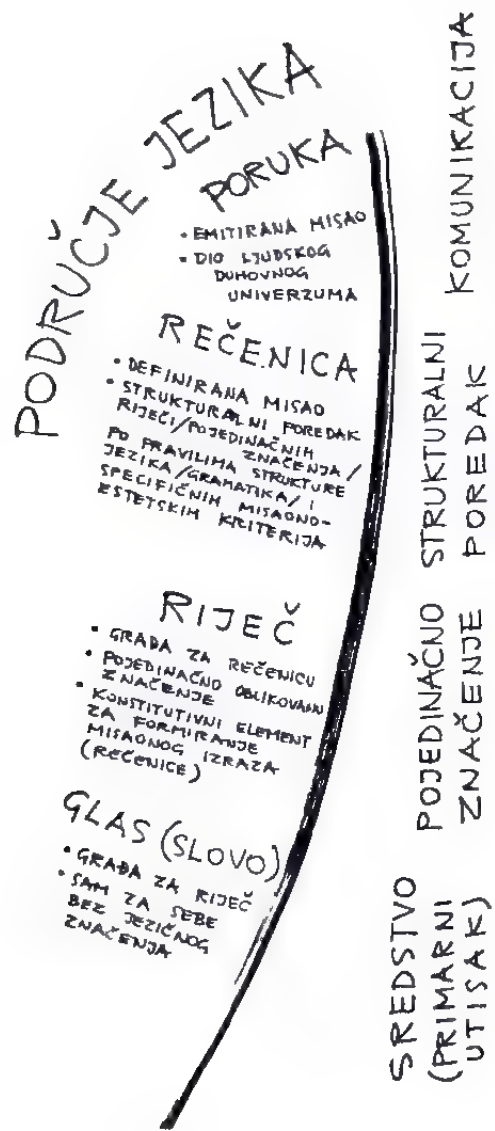 PODRUČJE JEZIKA
PORUKA
• EMITIRANA MISAO
• DIO LJUDSKOG
DUHOVNOG
UNIVERZUMA
REČENICA
• DEFINIRANA MISAO
• STRUKTURALNI POREDAK
RIJEČI/POJEDINAČNIH
ZNAČENJA/
PO PRAVILIMA STRUKTURE
JEZIKA/GRAMATIKA/ I
SPECIFIČNIH MISAONO-
ESTETSKIH KRITERIJA
RIJEČ
• GRAĐA ZA REČENICU
• POJEDINAČNO OBLIKOVANI
ZNAČENJE
• KONSTITUTIVNI ELEMENT
ZA FORMIRANJE
MISAONOG IZRAZA
(REČENICE)
GLAS (SLOVO)
• GRAĐA ZA RIJEČ
• SAM ZA SEBE
BEZ JEZIČNOG
ZNAČENJA
KOMUNIKACIJA
STRUKTURALNI
POREDAK
POJEDINAČNO
ZNAČENJE
SREDSTVO
(PRIMARNI
UTISAK)